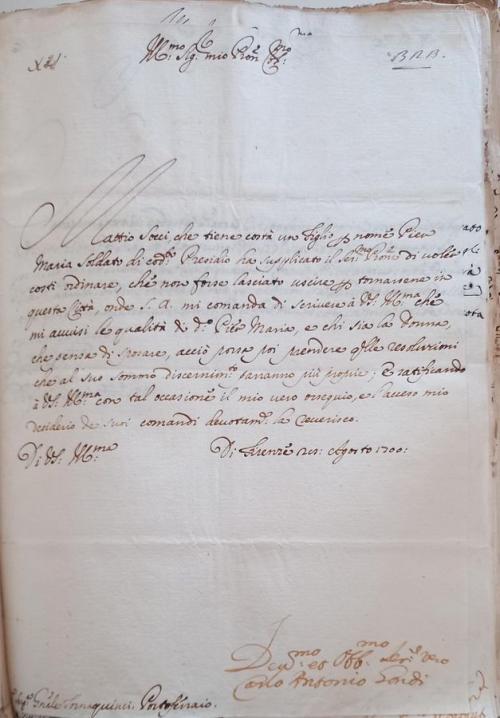 Ill:mo Sig:re mio Pron:e Col:mo
Mattio Socci, che tiene costà un figlio p nome Pier
Maria Soldato di cod:o Presidio ha supplicato il Ser:mo Pron:e di voler
costì ordinare, che non fosse lasciato uscire p tornarsene in
questa Città, onde S. A. mi comanda di scrivere à VS. Ill:ma che
mi avvisi le qualità di d:o Pier Maria, e chi sia la Donna,
che pensa di sposare, acciò possa poi prendere q:lle resoluzioni
che al suo sommo discernim:to saranno più proprie; E ratificando
à VS. Ill:ma con tal occasione il mio vero ossequio, e l'acceso mio
desiderio de suoi comandi devotam:te la riverisco.
Di VS. Ill:ma Di Firenze Agosto 1700:
Dev:mo et Obb:mo Ser:e vero
Carlo Antonio Gondi
Tornaquinci. Portoferraio.